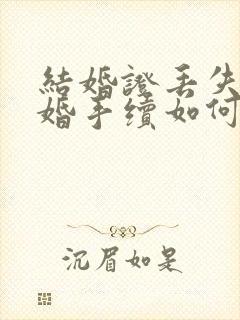 結婚證丢失
婚手續如何
沉眉如是